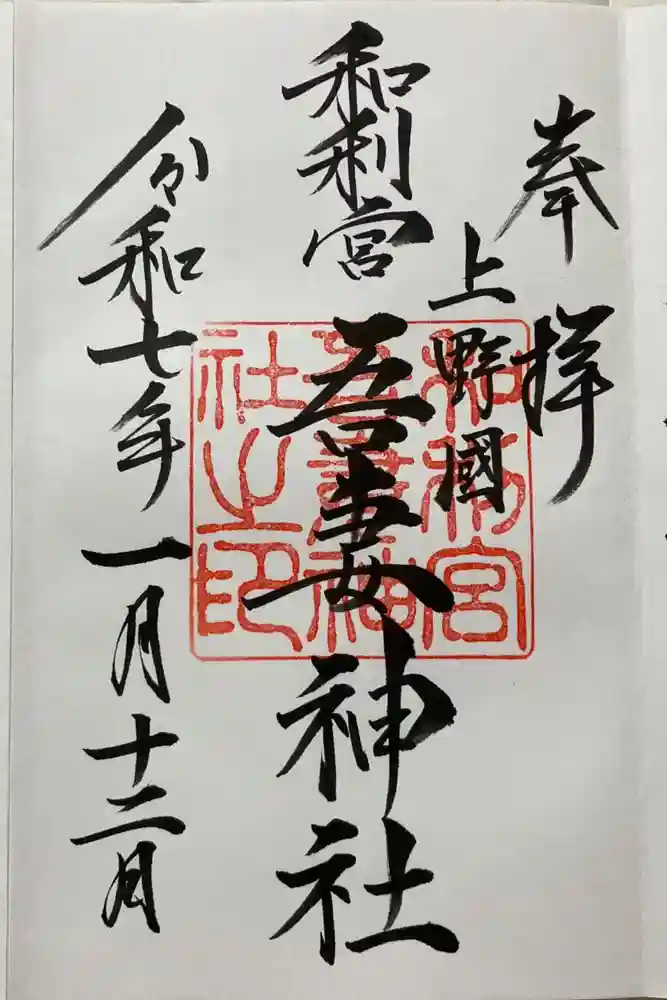 奉拝
上野國
和利宮
吾妻神社
和利宮
吾妻神
社之印
令和七年一月十二月